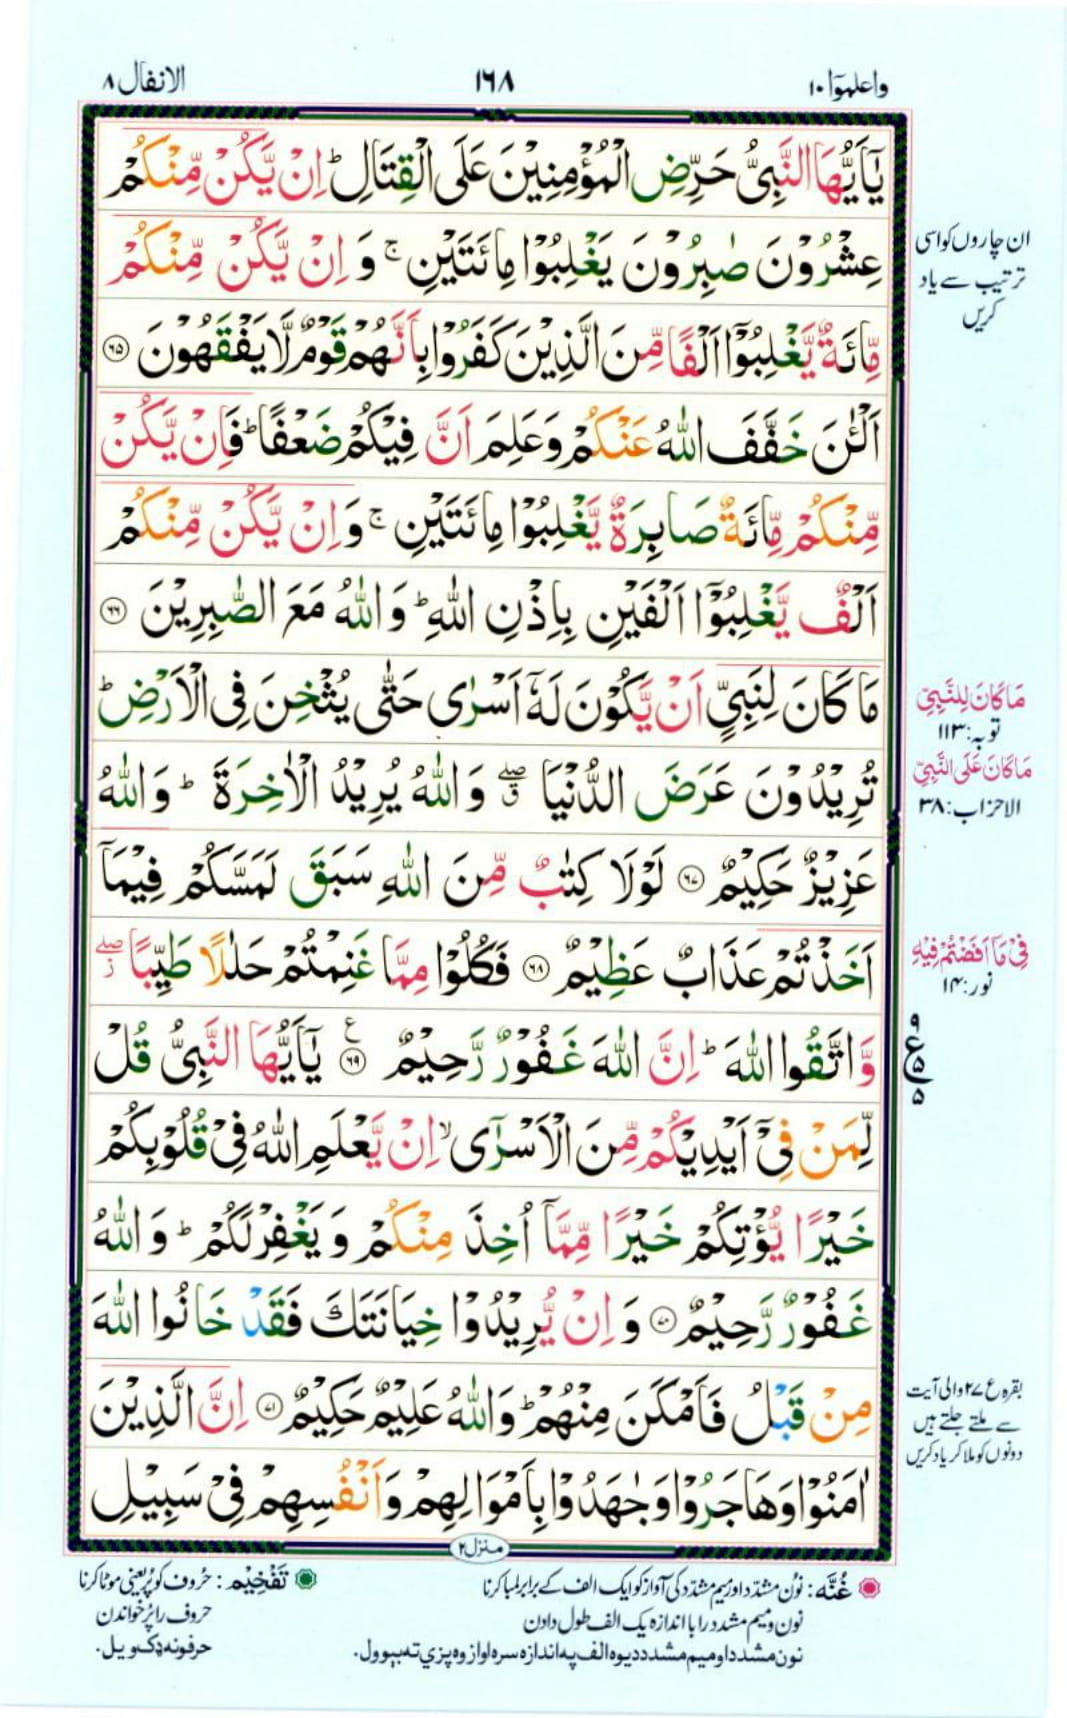 واعلموٓا ١٠
١٦٨
الانفال ٨
يٰۤاَيُّهَا النَّبِىُّ حَرِّضِ الْمُؤْمِنِيْنَ عَلَى الْقِتَالِ ؕ اِنْ يَّكُنْ مِّنْكُمْ
عِشْرُوْنَ صٰبِرُوْنَ يَغْلِبُوْا مِائَتَيْنِ ۚ وَ اِنْ يَّكُنْ مِّنْكُمْ
مِّائَةٌ يَّغْلِبُوْۤا اَلْفًا مِّنَ الَّذِيْنَ كَفَرُوْا بِاَنَّهُمْ قَوْمٌ لَّا يَفْقَهُوْنَ ۝٦٥
اَلْـٰٔنَ خَفَّفَ اللّٰهُ عَنْكُمْ وَعَلِمَ اَنَّ فِيْكُمْ ضَعْفًا ؕ فَاِنْ يَّكُنْ
مِّنْكُمْ مِّائَةٌ صَابِرَةٌ يَّغْلِبُوْا مِائَتَيْنِ ۚ وَ اِنْ يَّكُنْ مِّنْكُمْ
اَلْفٌ يَّغْلِبُوْۤا اَلْفَيْنِ بِاِذْنِ اللّٰهِ ؕ وَ اللّٰهُ مَعَ الصّٰبِرِيْنَ ۝٦٦
مَا كَانَ لِنَبِيٍّ اَنْ يَّكُوْنَ لَهٗۤ اَسْرٰى حَتّٰى يُثْخِنَ فِى الْاَرْضِ ؕ
تُرِيْدُوْنَ عَرَضَ الدُّنْيَا ۖق وَ اللّٰهُ يُرِيْدُ الْاٰخِرَةَ ؕ وَ اللّٰهُ
عَزِيْزٌ حَكِيْمٌ ۝٦٧ لَوْلَا كِتٰبٌ مِّنَ اللّٰهِ سَبَقَ لَمَسَّكُمْ فِيْمَاۤ
اَخَذْتُمْ عَذَابٌ عَظِيْمٌ ۝٦٨ فَكُلُوْا مِمَّا غَنِمْتُمْ حَلٰلًا طَيِّبًا ۖز
وَّاتَّقُوا اللّٰهَ ؕ اِنَّ اللّٰهَ غَفُوْرٌ رَّحِيْمٌ ۝٦٩ ع يٰۤاَيُّهَا النَّبِىُّ قُلْ
لِّمَنْ فِىْۤ اَيْدِيْكُمْ مِّنَ الْاَسْرٰٓى ۙ اِنْ يَّعْلَمِ اللّٰهُ فِىْ قُلُوْبِكُمْ
خَيْرًا يُّؤْتِكُمْ خَيْرًا مِّمَّاۤ اُخِذَ مِنْكُمْ وَ يَغْفِرْ لَكُمْ ؕ وَ اللّٰهُ
غَفُوْرٌ رَّحِيْمٌ ۝٧٠ وَ اِنْ يُّرِيْدُوْا خِيَانَتَكَ فَقَدْ خَانُوا اللّٰهَ
مِنْ قَبْلُ فَاَمْكَنَ مِنْهُمْ ؕ وَ اللّٰهُ عَلِيْمٌ حَكِيْمٌ ۝٧١ اِنَّ الَّذِيْنَ
اٰمَنُوْا وَ هَاجَرُوْا وَ جٰهَدُوْا بِاَمْوَالِهِمْ وَ اَنْفُسِهِمْ فِىْ سَبِيْلِ
ان چاروں کو اسی
ترتیب سے یاد
کریں
مَا كَانَ لِلنَّبِيِّ
توبہ: ۱۱۳
مَا كَانَ عَلَى النَّبِيِّ
الاحزاب: ۳۸
فِىْ مَاۤ اَفَضْتُمْ فِيْهِ
نور: ۱۴
۹
ع
۵
۵
بقرہ ع ۲۷ والی آیت
سے ملتے جلتے ہیں
دونوں کو ملا کر یاد کریں
منزل ۲
غُنَّه: نون مشدد اور میم مشدد کی آواز کو ایک الف کے برابر لمبا کرنا
نون و میم مشدد را با اندازہ یک الف طول دادن
نون مشدد او میم مشدد د یوه الف په اندازه سره اواز وه پزي ته بېوول.
تَفْخِيْم: حُروف کو پُر یعنی موٹا کرنا
حروف را پُر خواندن
حرفونه ډک ویل.